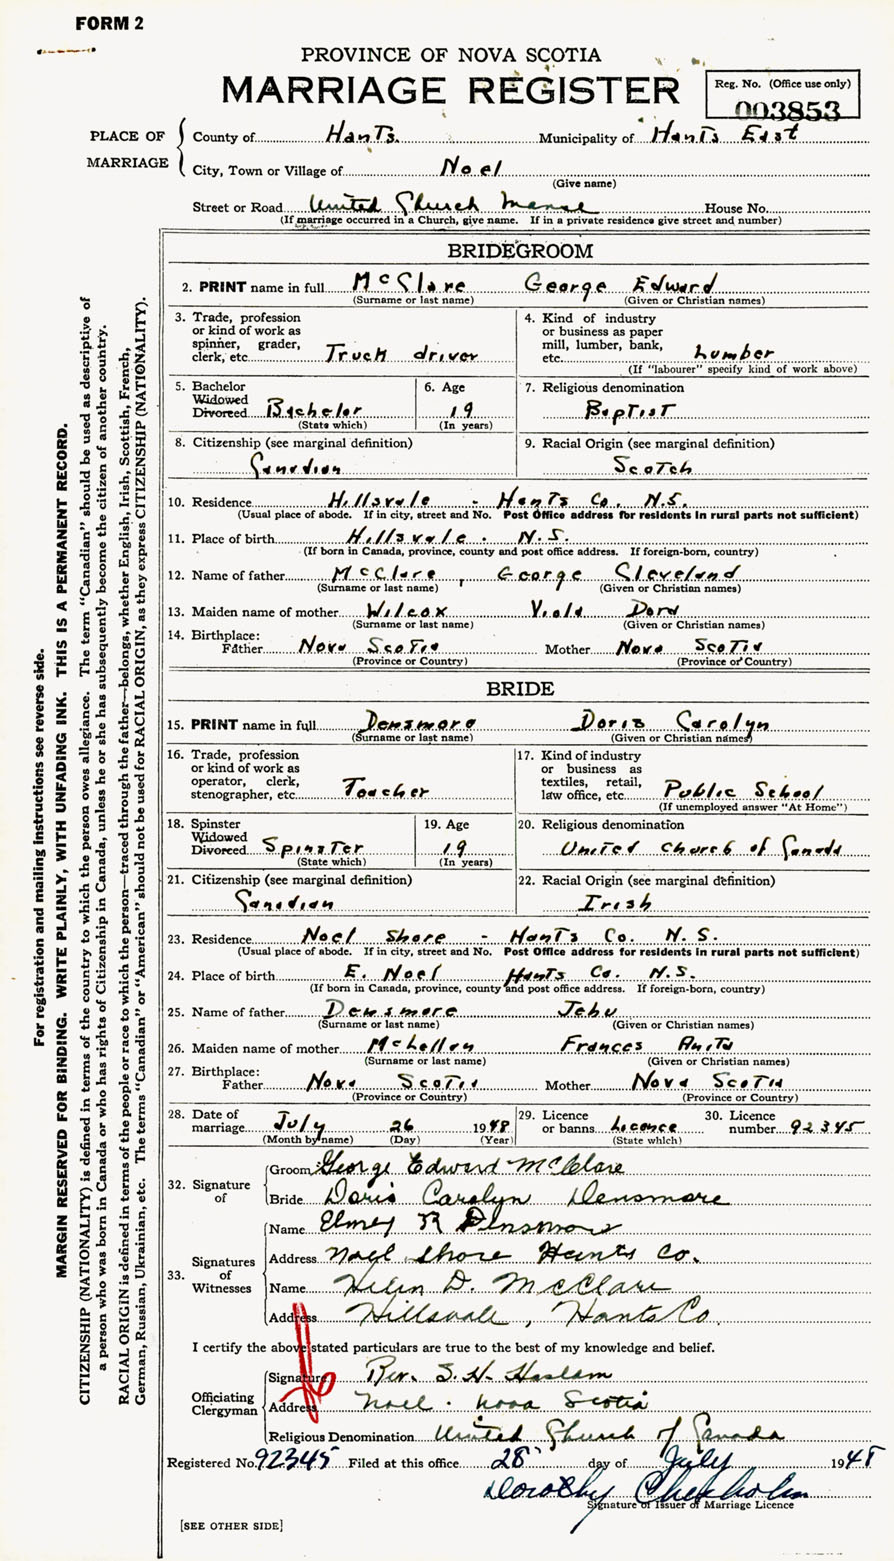 FORM 2
PROVINCE OF NOVA SCOTIA
MARRIAGE REGISTER
Reg. No. (Office use only)
003853
PLACE OF MARRIAGE
County of Hants. Municipality of Hants East
City, Town or Village of Noel
(Give name)
Street or Road United Church Manse House No.
(If marriage occurred in a Church, give name. If in a private residence give street and number)
BRIDEGROOM
2. PRINT name in full McClare George Edward
(Surname or last name) (Given or Christian names)
3. Trade, profession
or kind of work as
spinner, grader,
clerk, etc. Truck driver
4. Kind of industry
or business as paper
mill, lumber, bank,
etc. Lumber
(If "labourer" specify kind of work above)
5. Bachelor
Widowed
Divorced Bachelor
(State which)
6. Age
19
(In years)
7. Religious denomination
Baptist
8. Citizenship (see marginal definition)
Canadian
9. Racial Origin (see marginal definition)
Scotch
10. Residence Hillsvale - Hants Co. N.S.
(Usual place of abode. If in city, street and No. Post Office address for residents in rural parts not sufficient)
11. Place of birth Hillsvale. N.S.
(If born in Canada, province, county and post office address. If foreign-born, country)
12. Name of father McClare, George Cleveland
(Surname or last name) (Given or Christian names)
13. Maiden name of mother Wilcox Viola Dora
(Surname or last name) (Given or Christian names)
14. Birthplace:
Father Nova Scotia Mother Nova Scotia
(Province or Country) (Province or Country)
BRIDE
15. PRINT name in full Densmore Doris Carolyn
(Surname or last name) (Given or Christian names)
16. Trade, profession
or kind of work as
operator, clerk,
stenographer, etc. Teacher
17. Kind of industry
or business as
textiles, retail,
law office, etc. Public School
(If unemployed answer "At Home")
18. Spinster
Widowed
Divorced Spinster
(State which)
19. Age
19
(In years)
20. Religious denomination
United Church of Canada
21. Citizenship (see marginal definition)
Canadian
22. Racial Origin (see marginal definition)
Irish
23. Residence Noel Shore - Hants Co. N.S.
(Usual place of abode. If in city, street and No. Post Office address for residents in rural parts not sufficient)
24. Place of birth E. Noel Hants Co. N.S.
(If born in Canada, province, county and post office address. If foreign-born, country)
25. Name of father Densmore Jehu
(Surname or last name) (Given or Christian names)
26. Maiden name of mother McLellan Frances Anita
(Surname or last name) (Given or Christian names)
27. Birthplace:
Father Nova Scotia Mother Nova Scotia
(Province or Country) (Province or Country)
28. Date of
marriage July 26 1948
(Month by name) (Day) (Year)
29. Licence
or banns Licence
(State which)
30. Licence
number 92345
32. Signature of
Groom George Edward McClare
Bride Doris Carolyn Densmore
33. Signatures of Witnesses
Name Elmer R Densmore
Address Noel Shore Hants Co.
Name Helen D. McClare
Address Hillsvale, Hants Co.
I certify the above stated particulars are true to the best of my knowledge and belief.
Officiating Clergyman
Signature Rev. S. H. Haslam
Address Noel. Nova Scotia
Religious Denomination United Church of Canada
Registered No. 92345 Filed at this office 28 day of July 1948
Dorothy Chisholm
Signature of Issuer of Marriage Licence
[SEE OTHER SIDE]
For registration and mailing instructions see reverse side.
MARGIN RESERVED FOR BINDING. WRITE PLAINLY, WITH UNFADING INK. THIS IS A PERMANENT RECORD.
CITIZENSHIP (NATIONALITY) is defined in terms of the country to which the person owes allegiance. The term "Canadian" should be used as descriptive of
a person who was born in Canada or who has rights of Citizenship in Canada, unless he or she has subsequently become the citizen of another country.
RACIAL ORIGIN is defined in terms of the people or race to which the person—traced through the father—belongs, whether English, Irish, Scottish, French,
German, Russian, Ukrainian, etc. The terms "Canadian" or "American" should not be used for RACIAL ORIGIN, as they express CITIZENSHIP (NATIONALITY).